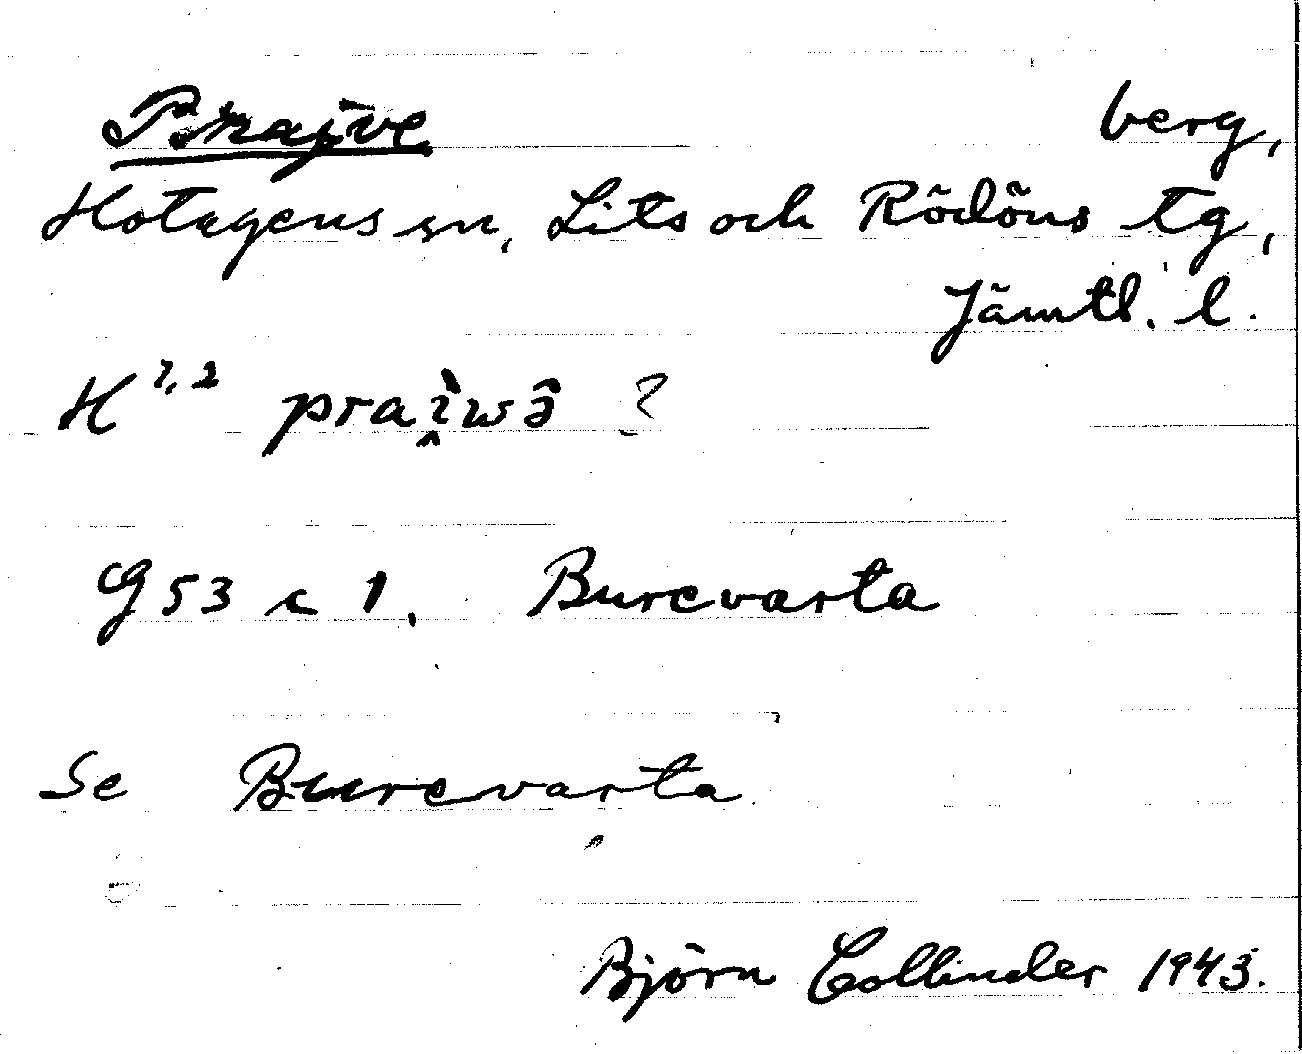 Prajve berg,
Hotagens sn, Lits och Rödöns tg,
Jämtl. l.
H 1, 2 prai̯wə̂ ?
G 53 c 1. Burevarta
Se Burevarta
Björn Collinder 1943.